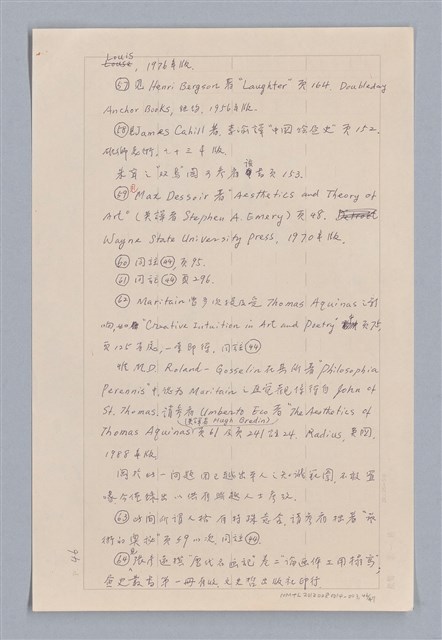 Louis
, 1976年版.
(57) 見 Henri Bergson 著 "Laughter" 頁164. Doubleday
Anchor Books, 紐約, 1956年版.
(58) 見James Cahill 著, 李渝譯 "中國繪畫史" 頁152.
雄獅美術, 七十三年版
"双鳥"圖可參看該書頁153.
(59) 見Max Dessoir 著 "Aesthetics and Theory of
Art" (英譯者 Stephen A. Emery) 頁48.
Wayne State University press, 1970年版.
(60) 同註(44), 頁95.
(61) 同註(44) 頁296.
(62) Maritain 曾多次提及受 Thomas Aquinas 之影
响, 如 "Creative Intuition in Art and Poetry" 中 頁75,
頁125等處, 同註(44)
惟 M.D. Roland-Gosselin 在其所著 "Philosophia
Perennis" 中, 認為 Maritain 之直覺觀係得自 John of
St. Thomas. 請參看 Umberto Eco 著 "The Aesthetics of
(英譯者 Hugh Bredin)
Thomas Aquinas" 頁61及頁241註24. Radius, 英國,
1988年版
關於此一問題因已越出本人之知識範圍, 不敢置
喙, 今僅錄出以供有興趣人士參攷.
(63) 時間所謂人格有特殊意含, 請參看拙著 "藝
術的奧秘" 頁59以次, 同註(44)
(64) 見張彥遠撰 "歷代名画記" 卷二 "論画体工用榻寫",
畫史叢書第一冊, 文史哲出版社印行.
94